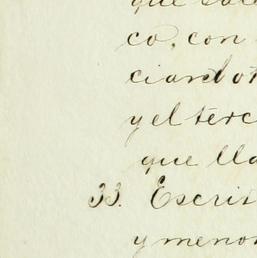 que sale
co, con
ciando
y el terc
que lla
33. Escrit
y menor